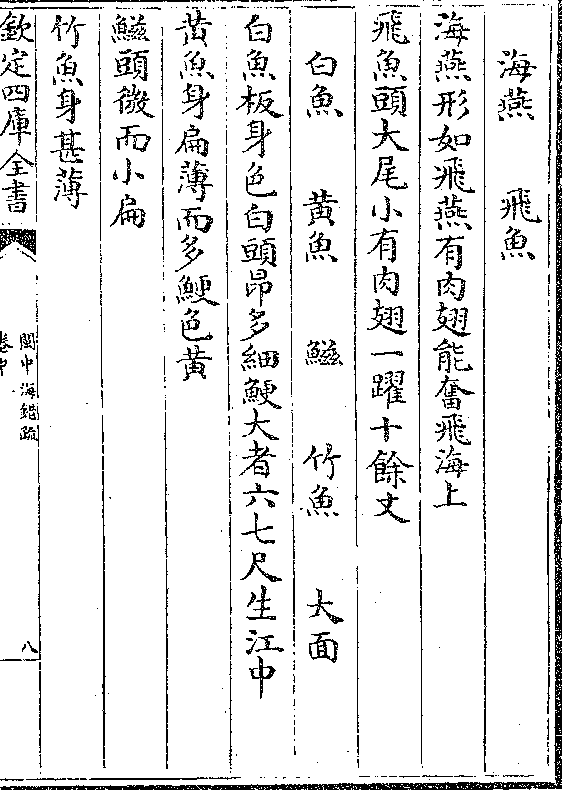 海燕　飛魚
海燕形如飛燕有肉翅能奮飛海上
飛魚頭大尾小有肉翅一躍十餘丈
白魚　黃魚　鰦　竹魚　大面
白魚板身色白頭昂多細鯁大者六七尺生江中
黃魚身扁薄而多鯁色黃
鰦頭微而小扁
竹魚身甚薄
欽定四庫全書
閩中海錯疏
卷中
八